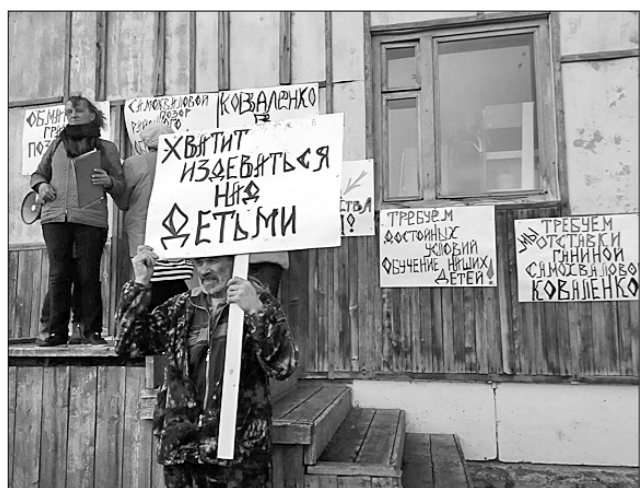 ОБМА
ПОЗ
САМОХВАЛОВОЙ
ПОЗОР
КОВАЛЕНКО
ХВАТИТ
ИЗДЕВАТЬСЯ
НАД
ДЕТЬМИ
ТРЕБУЕМ
ДОСТОЙНЫХ
УСЛОВИЙ
ОБУЧЕНИЕ НАШИХ
ДЕТЕЙ!
МЫ ТРЕБУЕМ
ОТСТАВКИ
ГАНИНОЙ
САМОХВАЛОВО
КОВАЛЕНКО